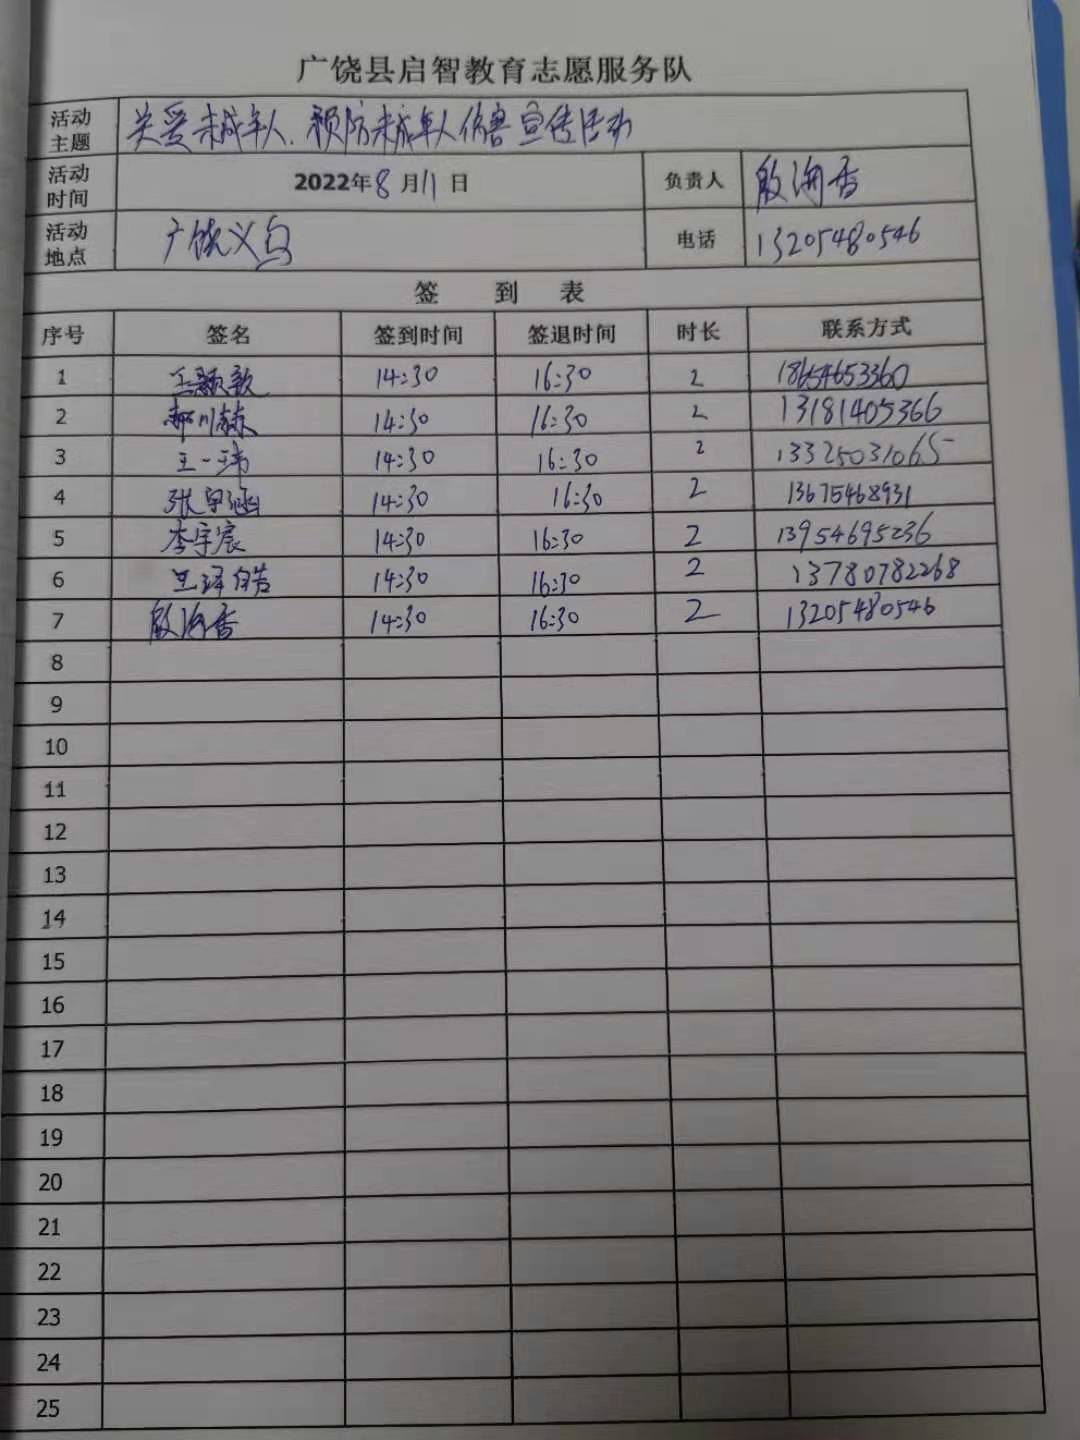 广饶县启智教育志愿服务队
活动主题 关爱未成年人、预防未成年人伤害宣传活动
活动时间 2022年8月11日 负责人 殷海香
活动地点 广饶义乌 电话 13205480546
签 到 表
序号 签名 签到时间 签退时间 时长 联系方式
1 王颢歌 14:30 16:30 2 18654653360
2 郝川赫 14:30 16:30 2 13181405366
3 王一玮 14:30 16:30 2 13325031065
4 张宇涵 14:30 16:30 2 13675468931
5 李宇宸 14:30 16:30 2 13954695236
6 王泽皓 14:30 16:30 2 13780782268
7 殷海香 14:30 16:30 2 13205480546
8
9
10
11
12
13
14
15
16
17
18
19
20
21
22
23
24
25